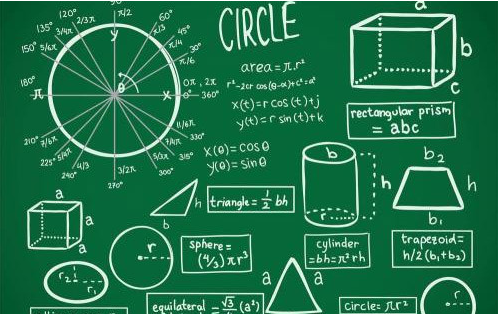 CIRCLE
area = π.r²
r²-2cr cos(θ-α)+c²=a²
x(t)=r cos(t)+j
y(t)=r sin(t)+k
x(θ)=cosθ
y(θ)=sinθ
120°
135°
150°
180°
210°
225°
240°
270°
300°
315°
330°
360°
30°
45°
60°
π/2
2/3π
3/4π
5/6π
π
7/6π
5/4π
4/3
3/2π
5/3π
7/4π
11/6π
π/6
π/4
π/3
0π, 2π
0°
y
x
θ
a
b
c
rectangular prism
= abc
a
a
a
h
b
triangle = 1/2 bh
b
h
r
cylinder
=bh=πr²h
b2
h
b1
trapezoid=
h/2 (b1+b2)
r2
r1
r
sphere=
(4/3)πr³
a
a
equilateral = √3/4 (a²)
circle= πr²
r